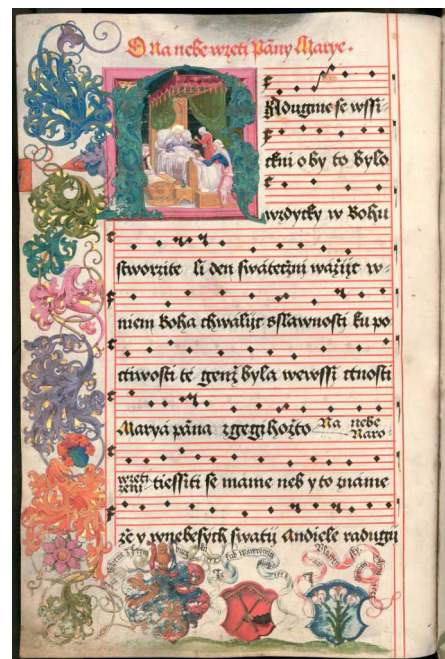 O Na nebe wzeti Pãny Marye.
RAdugme se wssi-
ckni o by to bylo
wzdycky w Bohu
stworzite li den swáteczni wážijc w-
niem Boha chwalijc sslawnosti ku po
cztiwosti té genž byla wewssi cztnosti
Maryá pãna zgegihožto Na nebe Naro-
wzeti zeni tiessiti se máme neb y to známe
zě y wnebesych swatij Andiele radugij